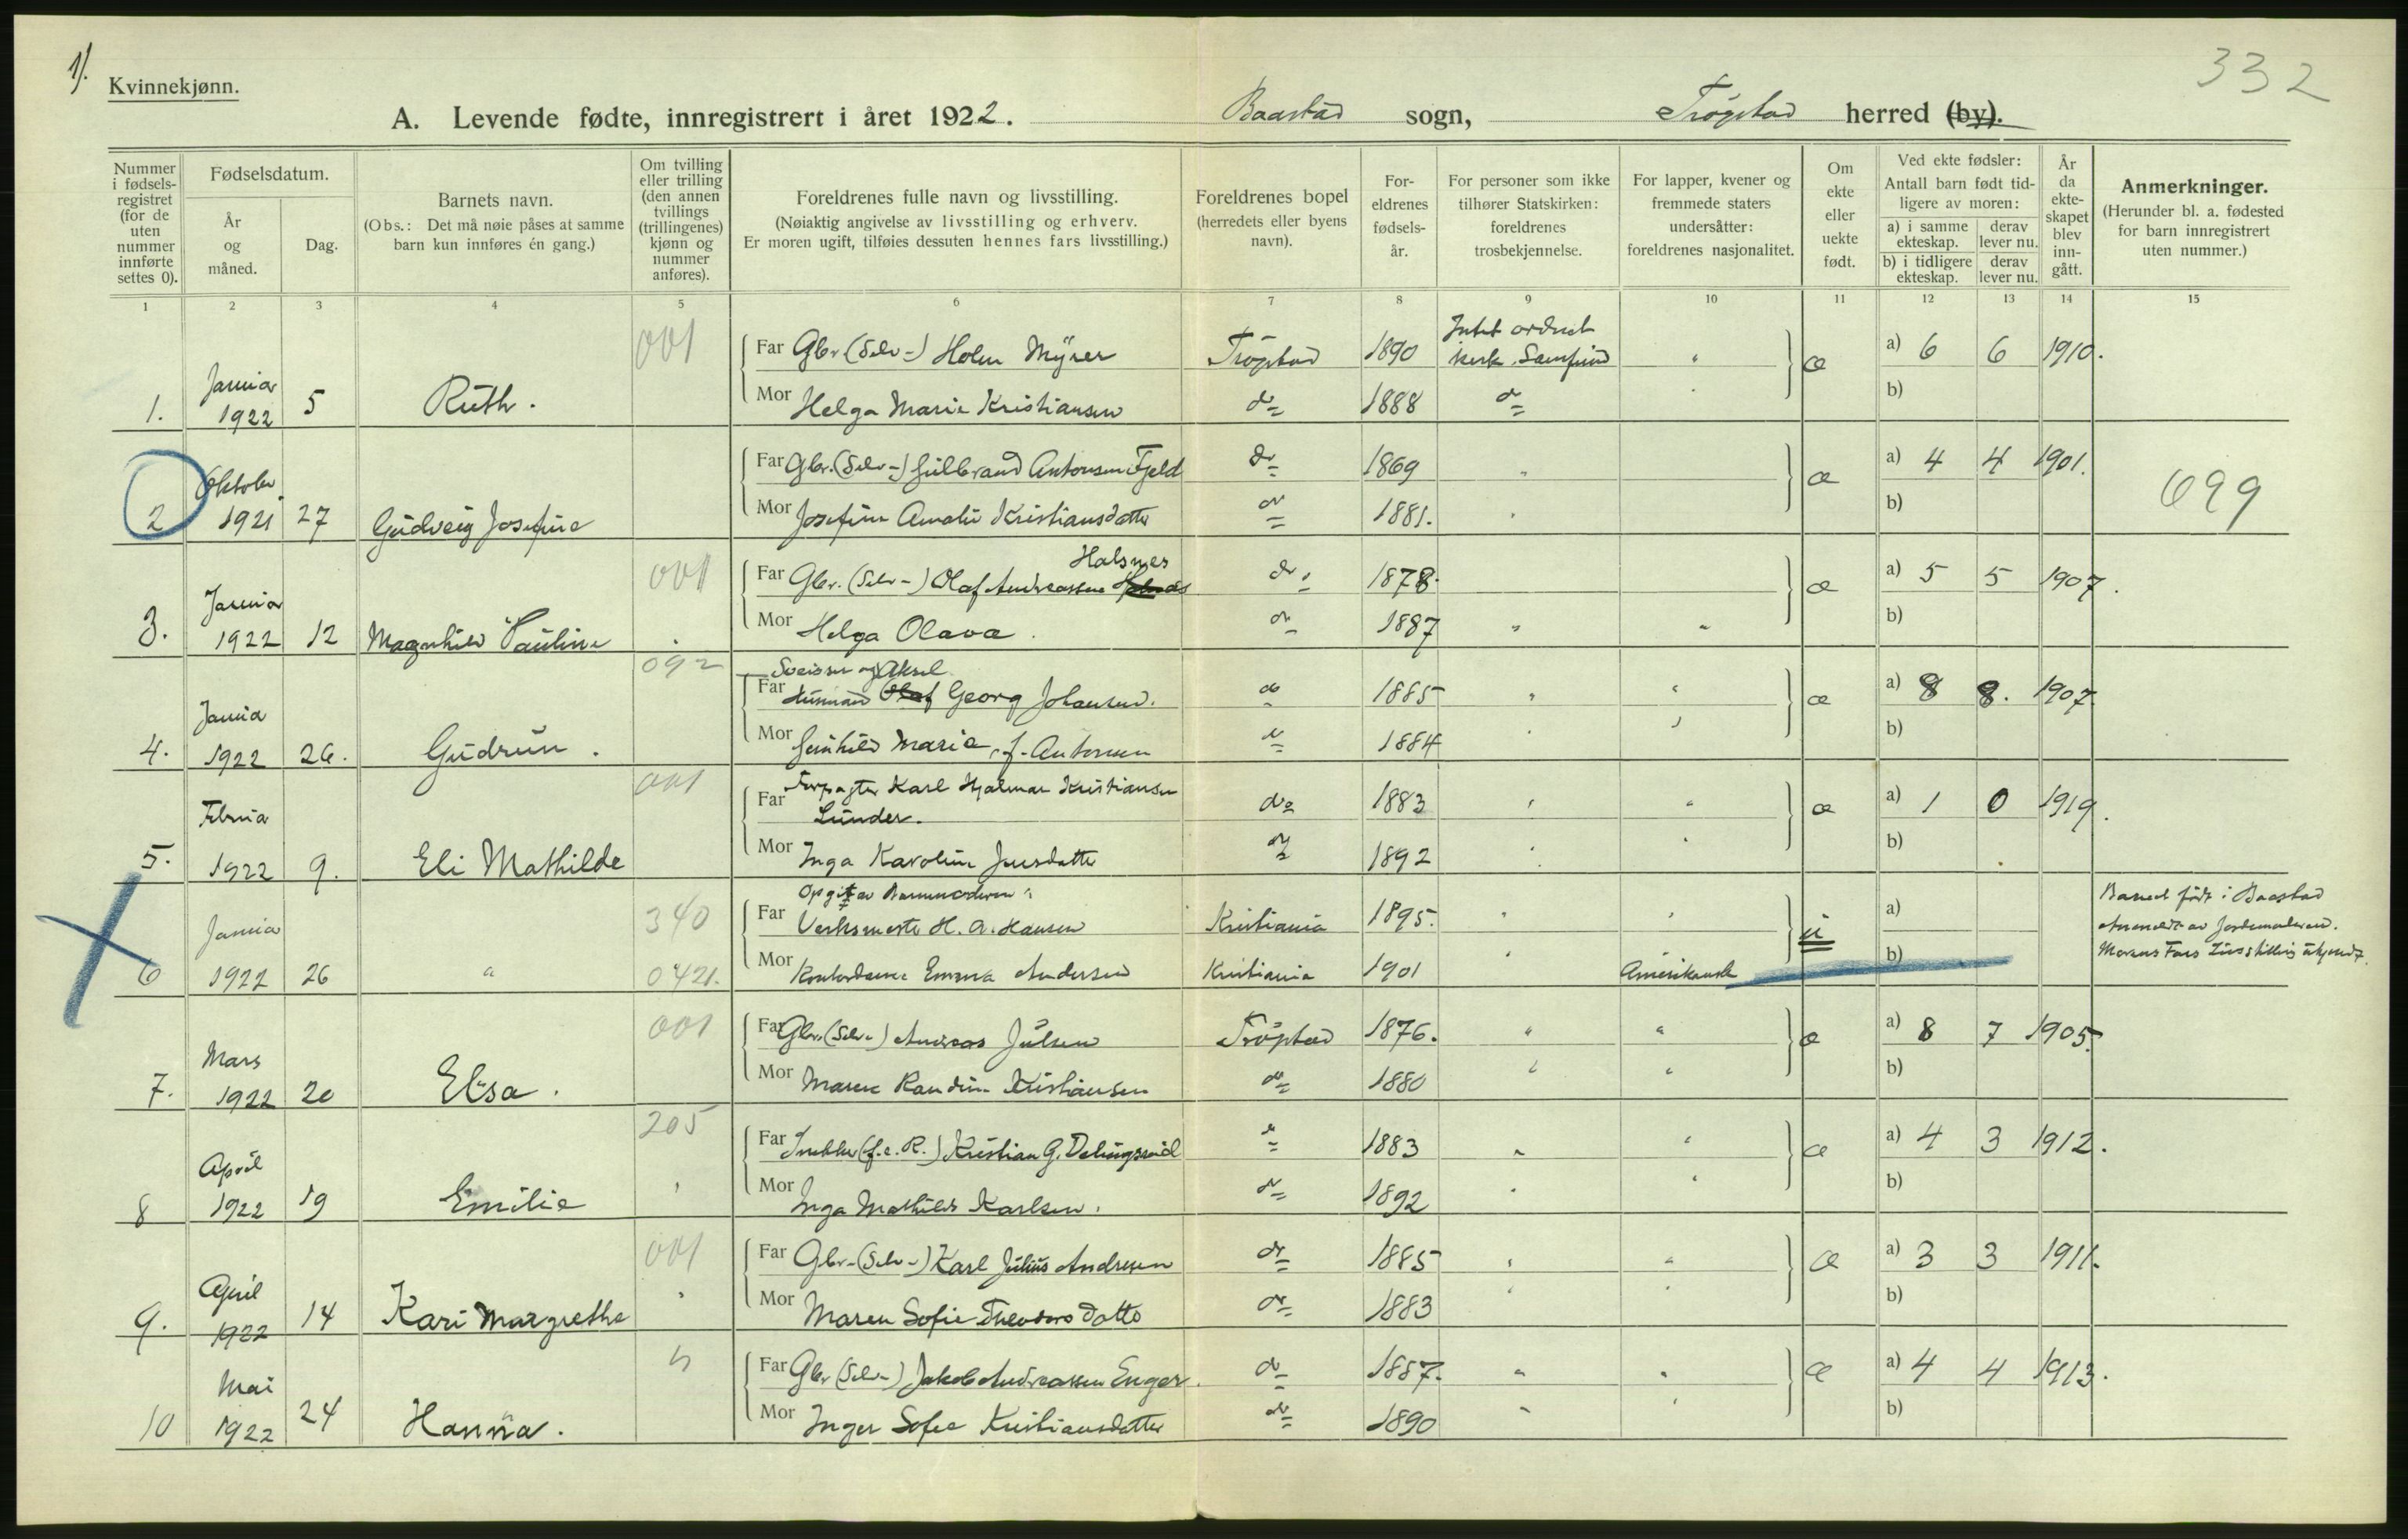 1).
Kvinnekjønn.
332
A. Levende fødte, innregistrert i året 1922. Baastad sogn, Trøgstad herred (by).
Nummer i fødsels-registret (for de uten nummer innførte settes 0).
Fødselsdatum.
År og måned.
Dag.
Barnets navn.
(Obs.: Det må nøie påses at samme barn kun innføres én gang.)
Om tvilling eller trilling (den annen tvillings (trillingenes) kjønn og nummer anføres).
Foreldrenes fulle navn og livsstilling.
(Nøiaktig angivelse av livsstilling og erhverv.
Er moren ugift, tilføies dessuten hennes fars livsstilling.)
Foreldrenes bopel (herredets eller byens navn).
For-eldrenes fødsels-år.
For personer som ikke tilhører Statskirken: foreldrenes trosbekjennelse.
For lapper, kvener og fremmede staters undersåtter: foreldrenes nasjonalitet.
Om ekte eller uekte født.
Ved ekte fødsler:
Antall barn født tid-ligere av moren:
a) i samme ekteskap.
derav lever nu.
b) i tidligere ekteskap.
derav lever nu.
År da ekte-skapet blev inn-gått.
Anmerkninger.
(Herunder bl. a. fødested for barn innregistrert uten nummer.)
1 2 3 4 5 6 7 8 9 10 11 12 13 14 15
1. Januar 1922 5 Ruth. 001
Far Gbr. (Selv-) Holm Myrer Trøgstad 1890 Intet ordnet kirk. Samfund " æ a) 6 6 1910.
Mor Helga Marie Kristiansen do 1888 do b)
2 Oktober 1921 27 Gudveig Josefine
Far Gbr. (Selv-) Gulbrand Antonsen Fjeld do 1869 " æ a) 4 4 1901. 699
Mor Josefine Amalie Kristiansdatter do 1881. " b)
3. Januar 1922 12 Magnhild Pauline 001
Halsnes
Far Gbr. (Selv-) Olaf Andreassen do 1878. æ a) 5 5 1907.
Mor Helga Olava do 1887 " " b)
4. Janua 1922 26. Gudrun. 092
Sveisser og Aksel
Far Olaf Georg Johansen. do 1885 " " æ a) 8 8. 1907.
Mor Gunhild Marie, f. Antonsen do 1884 " " b)
5. Februa 1922 9. Eli Mathilde 001
Far Forpagter Karl Hjalmar Kristiansen
Lunder. do 1883 " " æ a) 1 0 1919.
Mor Inga Karoline Jensdatter do 1892 " " b)
6 Janua 1922 26 " 340 0421.
Opgit av Barnemoderen:
Far Verksmester H. A. Hansen Kristiania 1895. " " u a)
Mor Kontordame Emma Andersen Kristiania 1901 " Amerikansk b)
Barnet født i Baastad
Anmeldt av Jordemoderen.
Morens Fars Livsstilling ukjendt.
7. Mars 1922 20 Elsa. 001
Far Gbr. (Selv-) Andreas Julsen Trøgstad 1876. " " æ a) 8 7 1905.
Mor Maren Randine Kristiansen do 1880 " " b)
8 April 1922 19 Emilie 205
Far Snekker (f. e. R.) Kristian G. Delingsrud do 1883 " " æ a) 4 3 1912.
Mor Inga Mathilde Karlsen. do 1892 " " b)
9. April 1922 14 Kari Margrethe 001
Far Gbr. (Selv-) Karl Julius Andresen do 1885 " " æ a) 3 3 1911.
Mor Maren Sofie Theodorsdatter do 1883 " " b)
10 Mai 1922 24 Hanna. "
Far Gbr (Selv-) Jakob Andreassen Enger. do 1887. " " æ a) 4 4 1913.
Mor Inger Sofie Kristiansdatter do 1890 " " b)